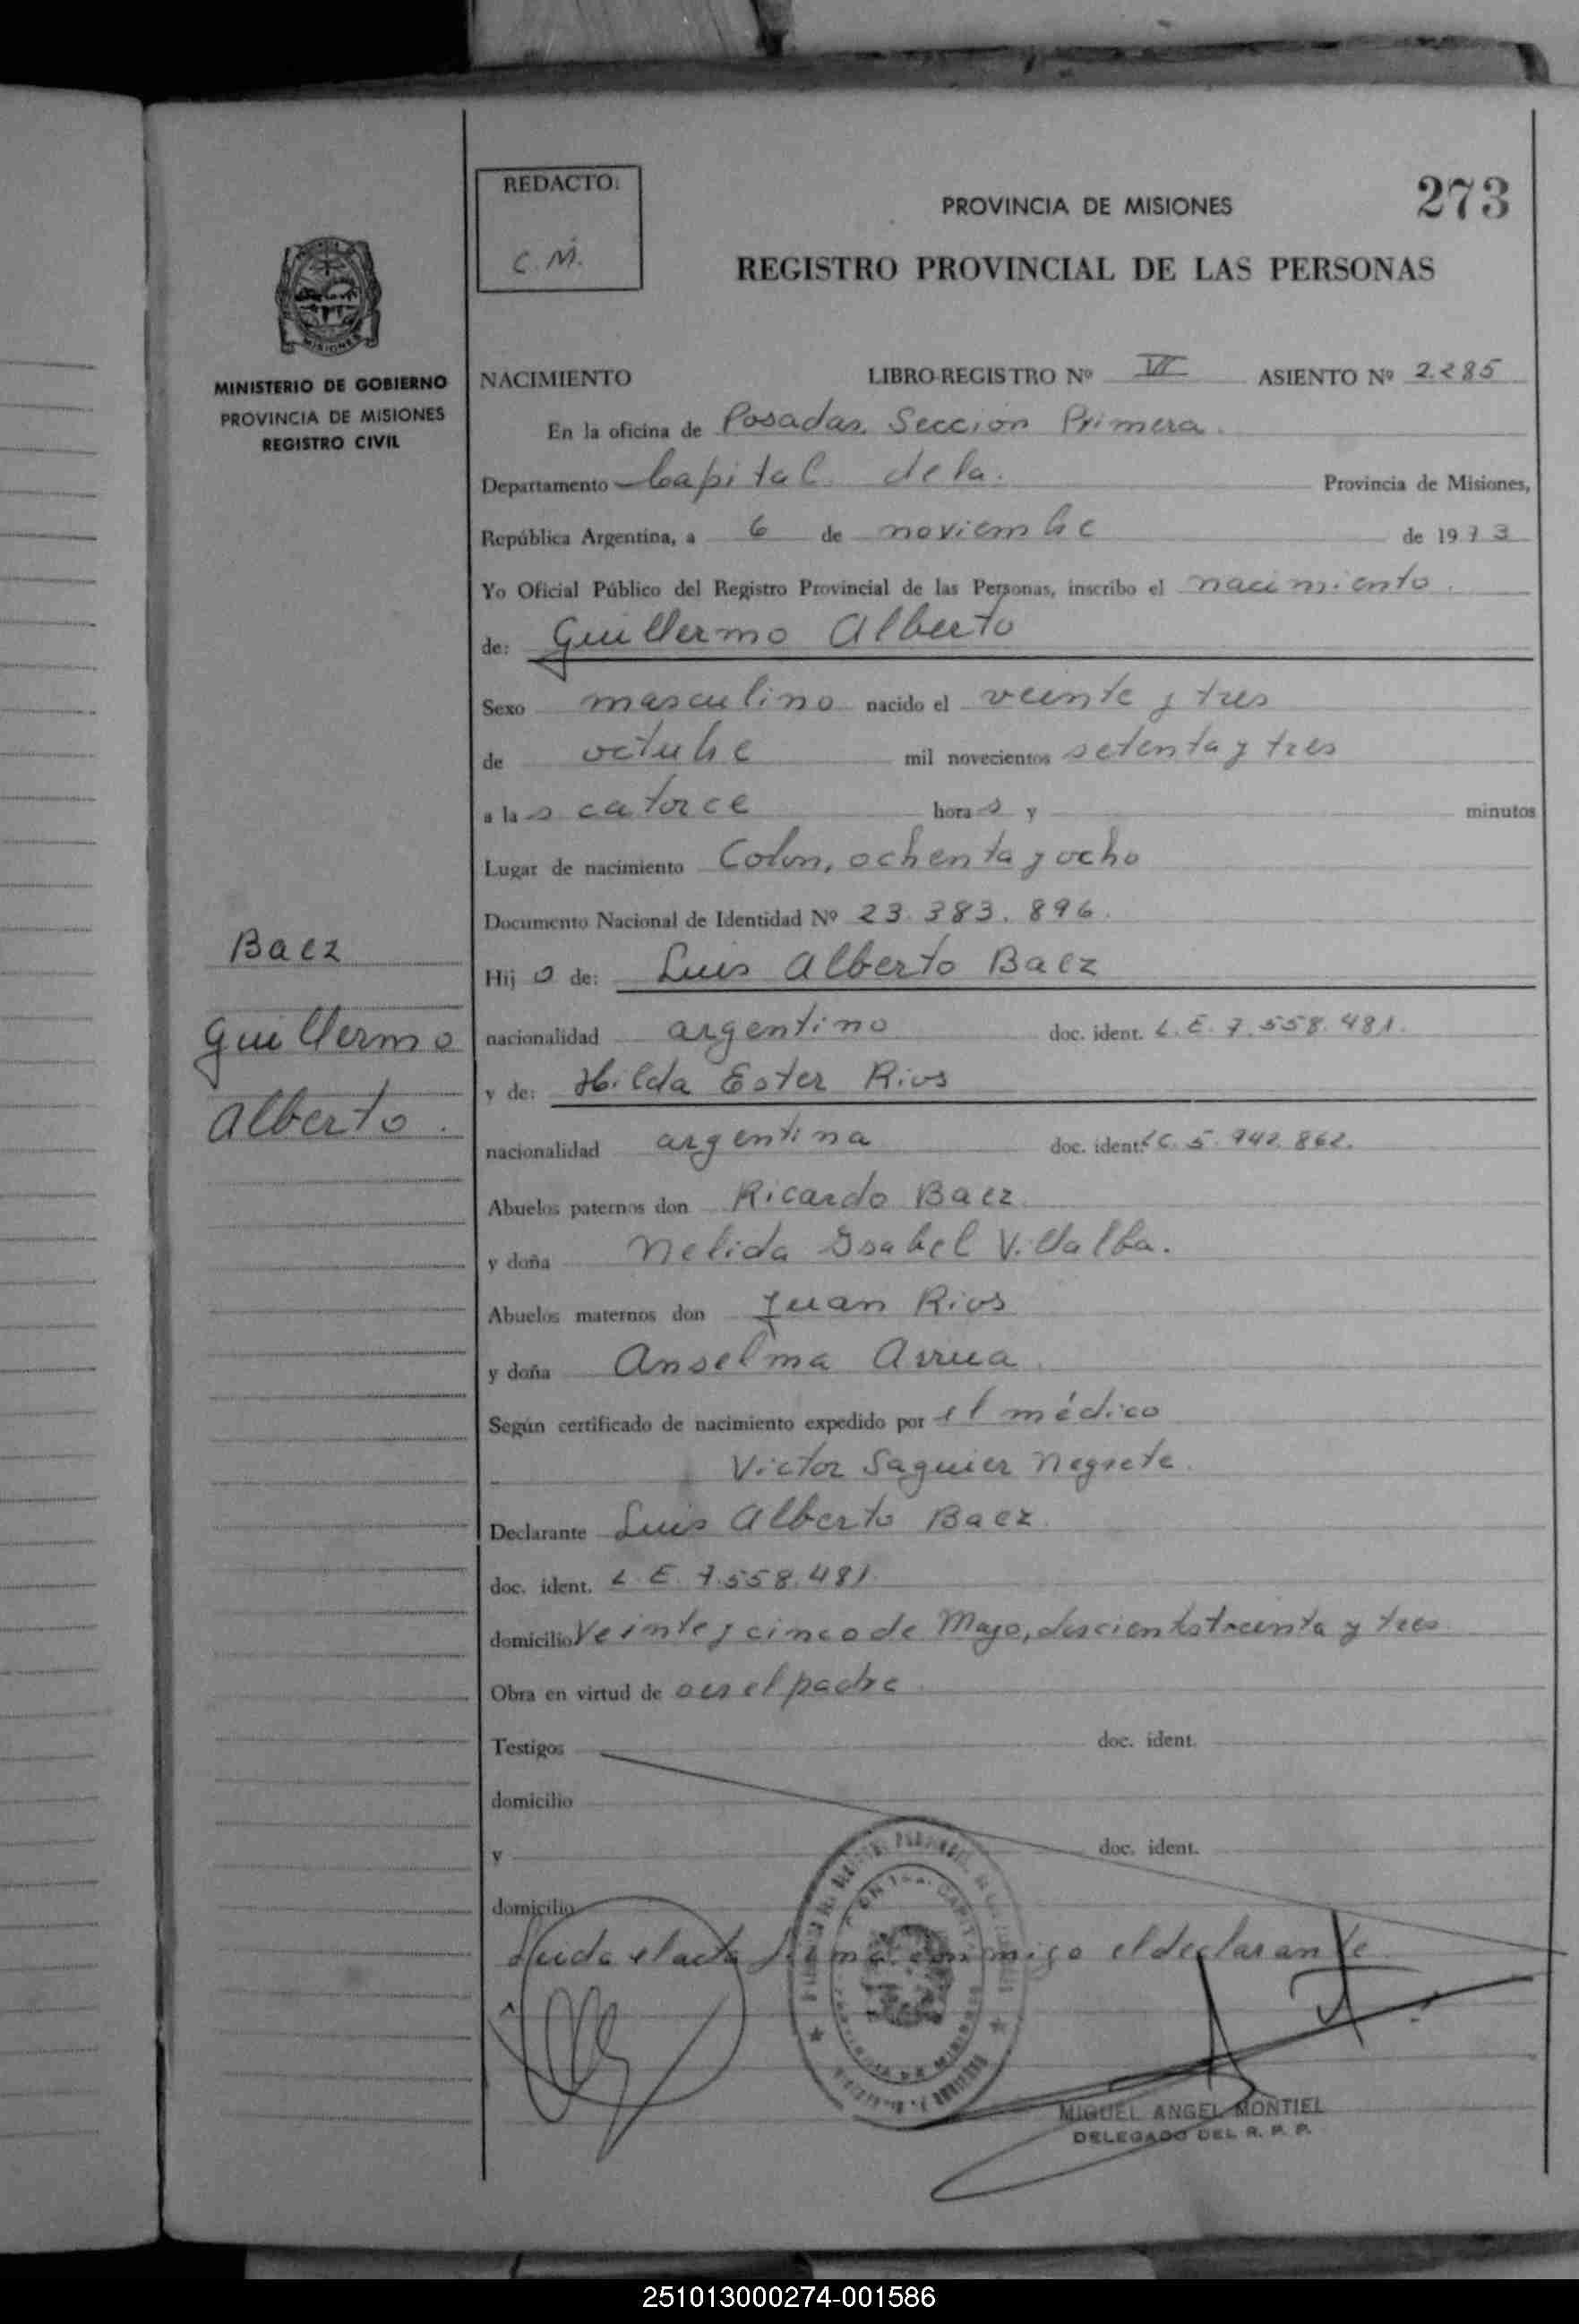 273
REDACTO:
C. M.
PROVINCIA DE MISIONES
REGISTRO PROVINCIAL DE LAS PERSONAS
MISIONES
MINISTERIO DE GOBIERNO
PROVINCIA DE MISIONES
REGISTRO CIVIL
NACIMIENTO LIBRO-REGISTRO Nº VI ASIENTO Nº 2.285
En la oficina de Posadas, Sección Primera.
Departamento Capital de la. Provincia de Misiones,
República Argentina, a 6 de noviembre de 1973
Yo Oficial Público del Registro Provincial de las Personas, inscribo el nacimiento.
de: Guillermo Alberto
Sexo masculino nacido el veinte y tres
de octubre mil novecientos setenta y tres
a las catorce horas y minutos
Lugar de nacimiento Colon, ochenta y ocho
Documento Nacional de Identidad Nº 23.383.896.
Baez
Hijo de: Luis Alberto Baez
Guillermo
nacionalidad argentino doc. ident. L.E. 7.558.481.
y de: Hilda Ester Rios
Alberto.
nacionalidad argentina doc. ident. LC. 5.942.862.
Abuelos paternos don Ricardo Baez
y doña Nelida Isabel Villalba.
Abuelos maternos don Juan Rios
y doña Anselma Arrua.
Según certificado de nacimiento expedido por el médico
Victor Saguier Negrete.
Declarante Luis Alberto Baez.
doc. ident. L.E. 7.558.481.
domicilio Veinte y cinco de Mayo, doscientos treinta y tres
Obra en virtud de ser el padre.
Testigos doc. ident.
domicilio
y doc. ident.
domicilio
Leida el acta firma conmigo el declarante
MIGUEL ANGEL MONTIEL
DELEGADO DEL R. P. P.
251013000274-001586